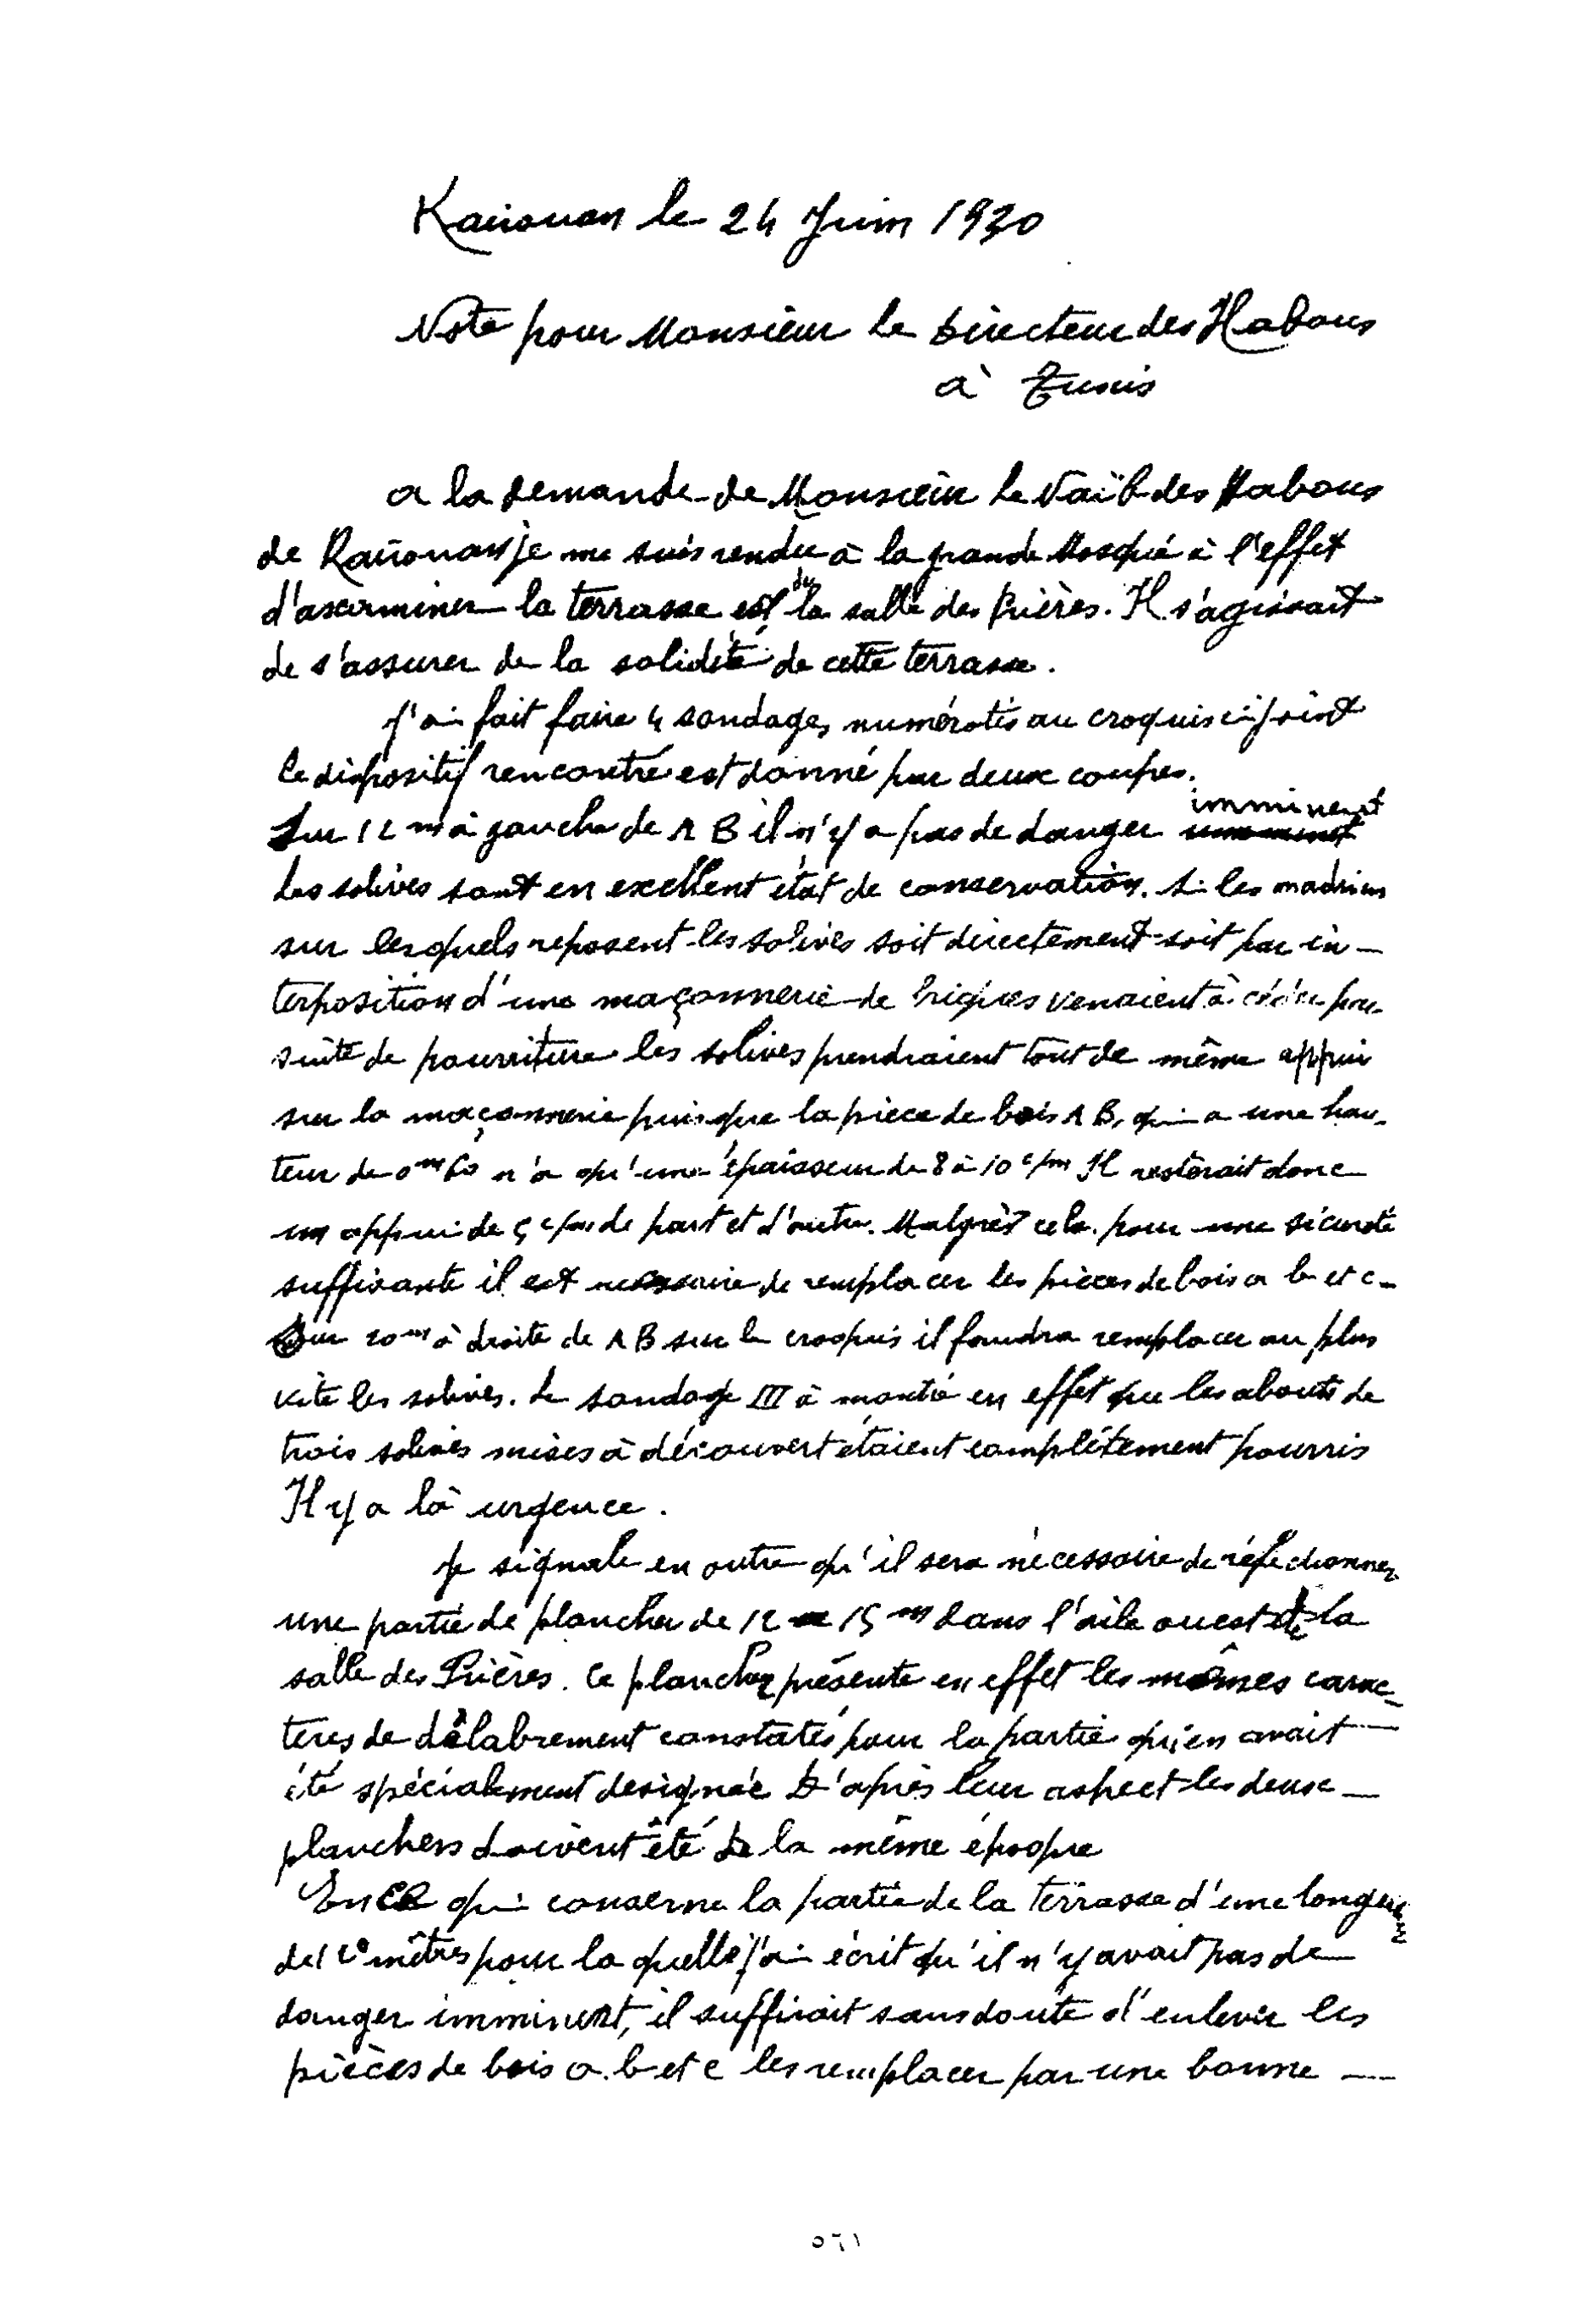 Kairouan le 24 Juin 1930
Note pour Monsieur le Directeur des Habous
à Tunis
a la demande de Monsieur le Naïb des Habous
de Kairouan je me suis rendu à la grande Mosquée à l'effet
d'examiner la terrasse est de la salle des Prières. Il s'agissait
de s'assurer de la solidité de cette terrasse.
J'ai fait faire 4 sondages numérotés au croquis ci joint
le dispositif rencontré est donné par deux coupes.
Sur 12 m à gauche de A B il n'y a pas de danger imminent
Les solives sont en excellent état de conservation. Si les madriers
sur lesquels reposent les solives soit directement soit par in-
terposition d'une maçonnerie de briques venaient à céder par
suite de pourriture les solives prendraient tout de même appui
sur la maçonnerie puisque la pièce de bois A B, qui a une hau-
teur de 0m60 n'a qu'une épaisseur de 8 à 10 c/m Il resterait donc
un appui de 5 c/m de part et d'autre. Malgré cela pour une sécurité
suffisante il est necessaire de remplacer les pièces de bois a b et c -
Sur 20m à droite de A B sur le croquis il faudra remplacer au plus
vite les solives. Le sondage III à montré en effet que les abouts de
trois solives mises à découvert étaient complètement pourris
Il y a là urgence.
Je signale en outre qu'il sera nécessaire de réfectionner
une partie de plancher de 12 15 m dans l'aile ouest de la
salle des Prières. Ce plancher présente en effet les mêmes carac-
tères de délabrement constatés pour la partie qui en avait
été spécialement designée D'après leur aspect les deux
planchers doivent été de la même époque
En ce qui concerne la partie de la terrasse d'une longueur
de 12 mètres pour la quelle j'ai écrit qu'il n'y avait pas de
danger imminent, il suffirait sans doute d'enlever les
pièces de bois a. b et c les remplacer par une bonne
٥٦١